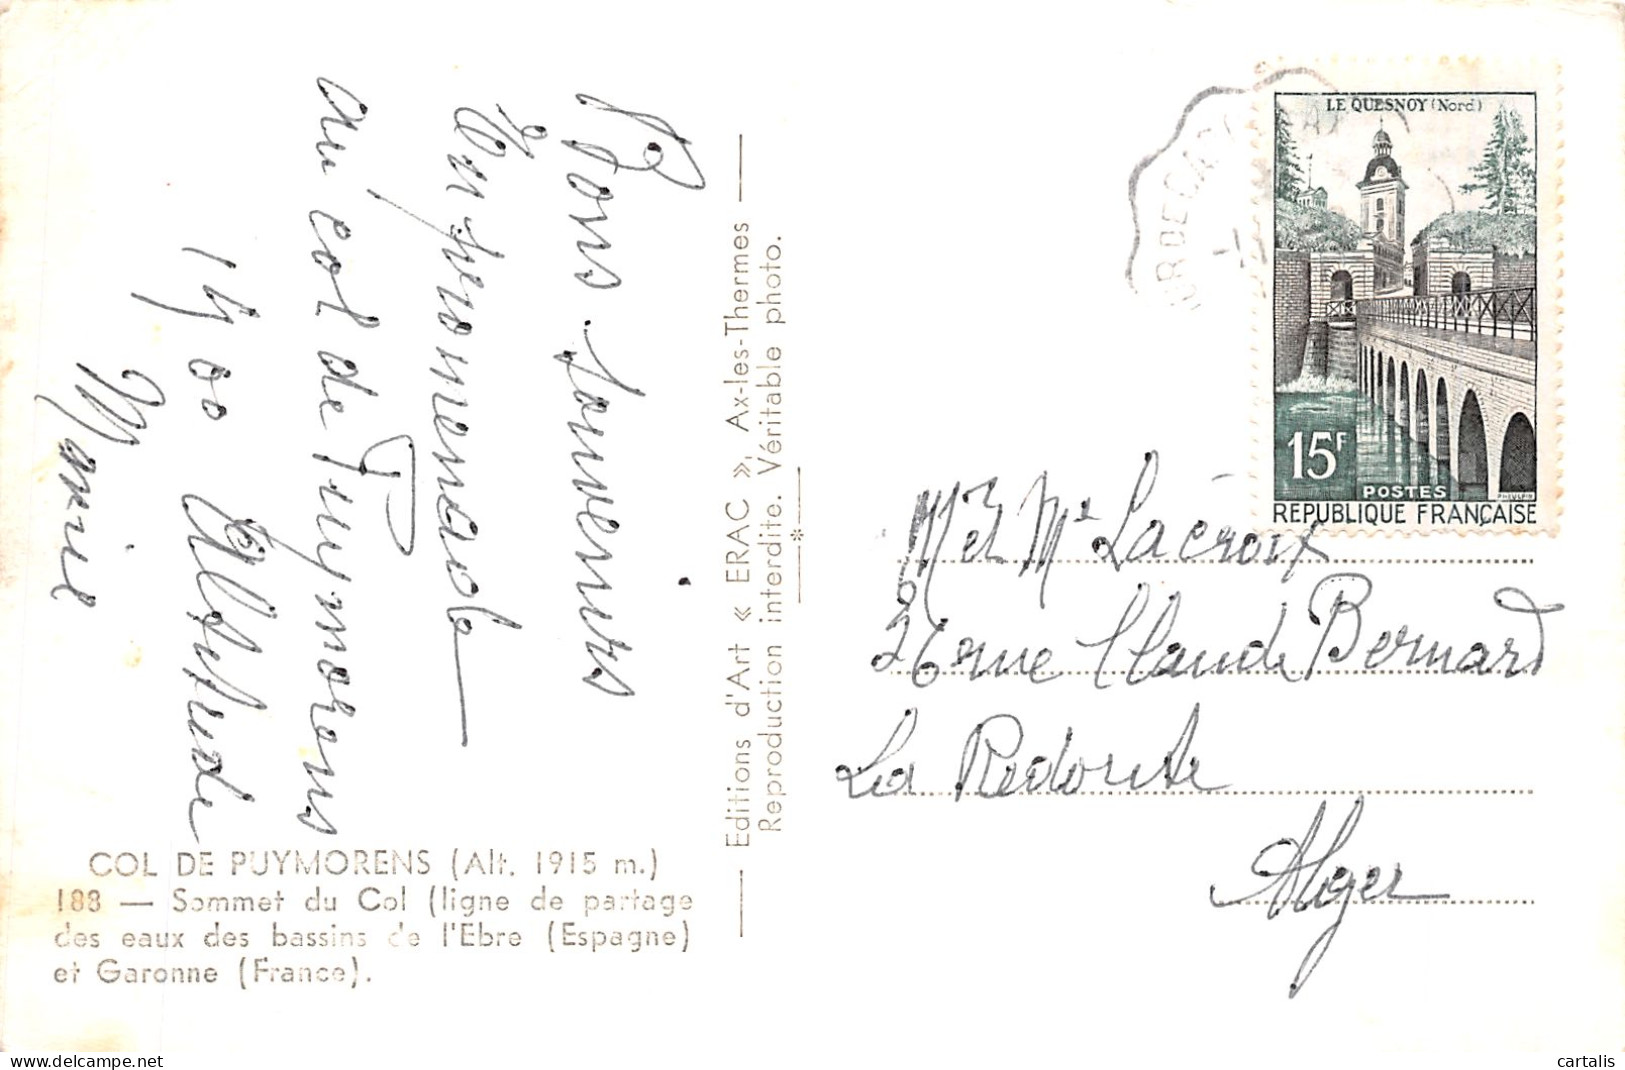 Bons souvenirs
En promenade
au col de Puymorens
1900 Altitude
Marie
COL DE PUYMORENS (Alt. 1915 m.)
188 — Sommet du Col (ligne de partage
des eaux des bassins de l'Ebre (Espagne)
et Garonne (France).
Editions d'Art « ERAC », Ax-les-Thermes
Reproduction interdite. Véritable photo.
LE QUESNOY (Nord)
15F
POSTES
REPUBLIQUE FRANÇAISE
M et Me Lacroix
26 rue Claude Bernard
La Redoute
Alger
cartalis